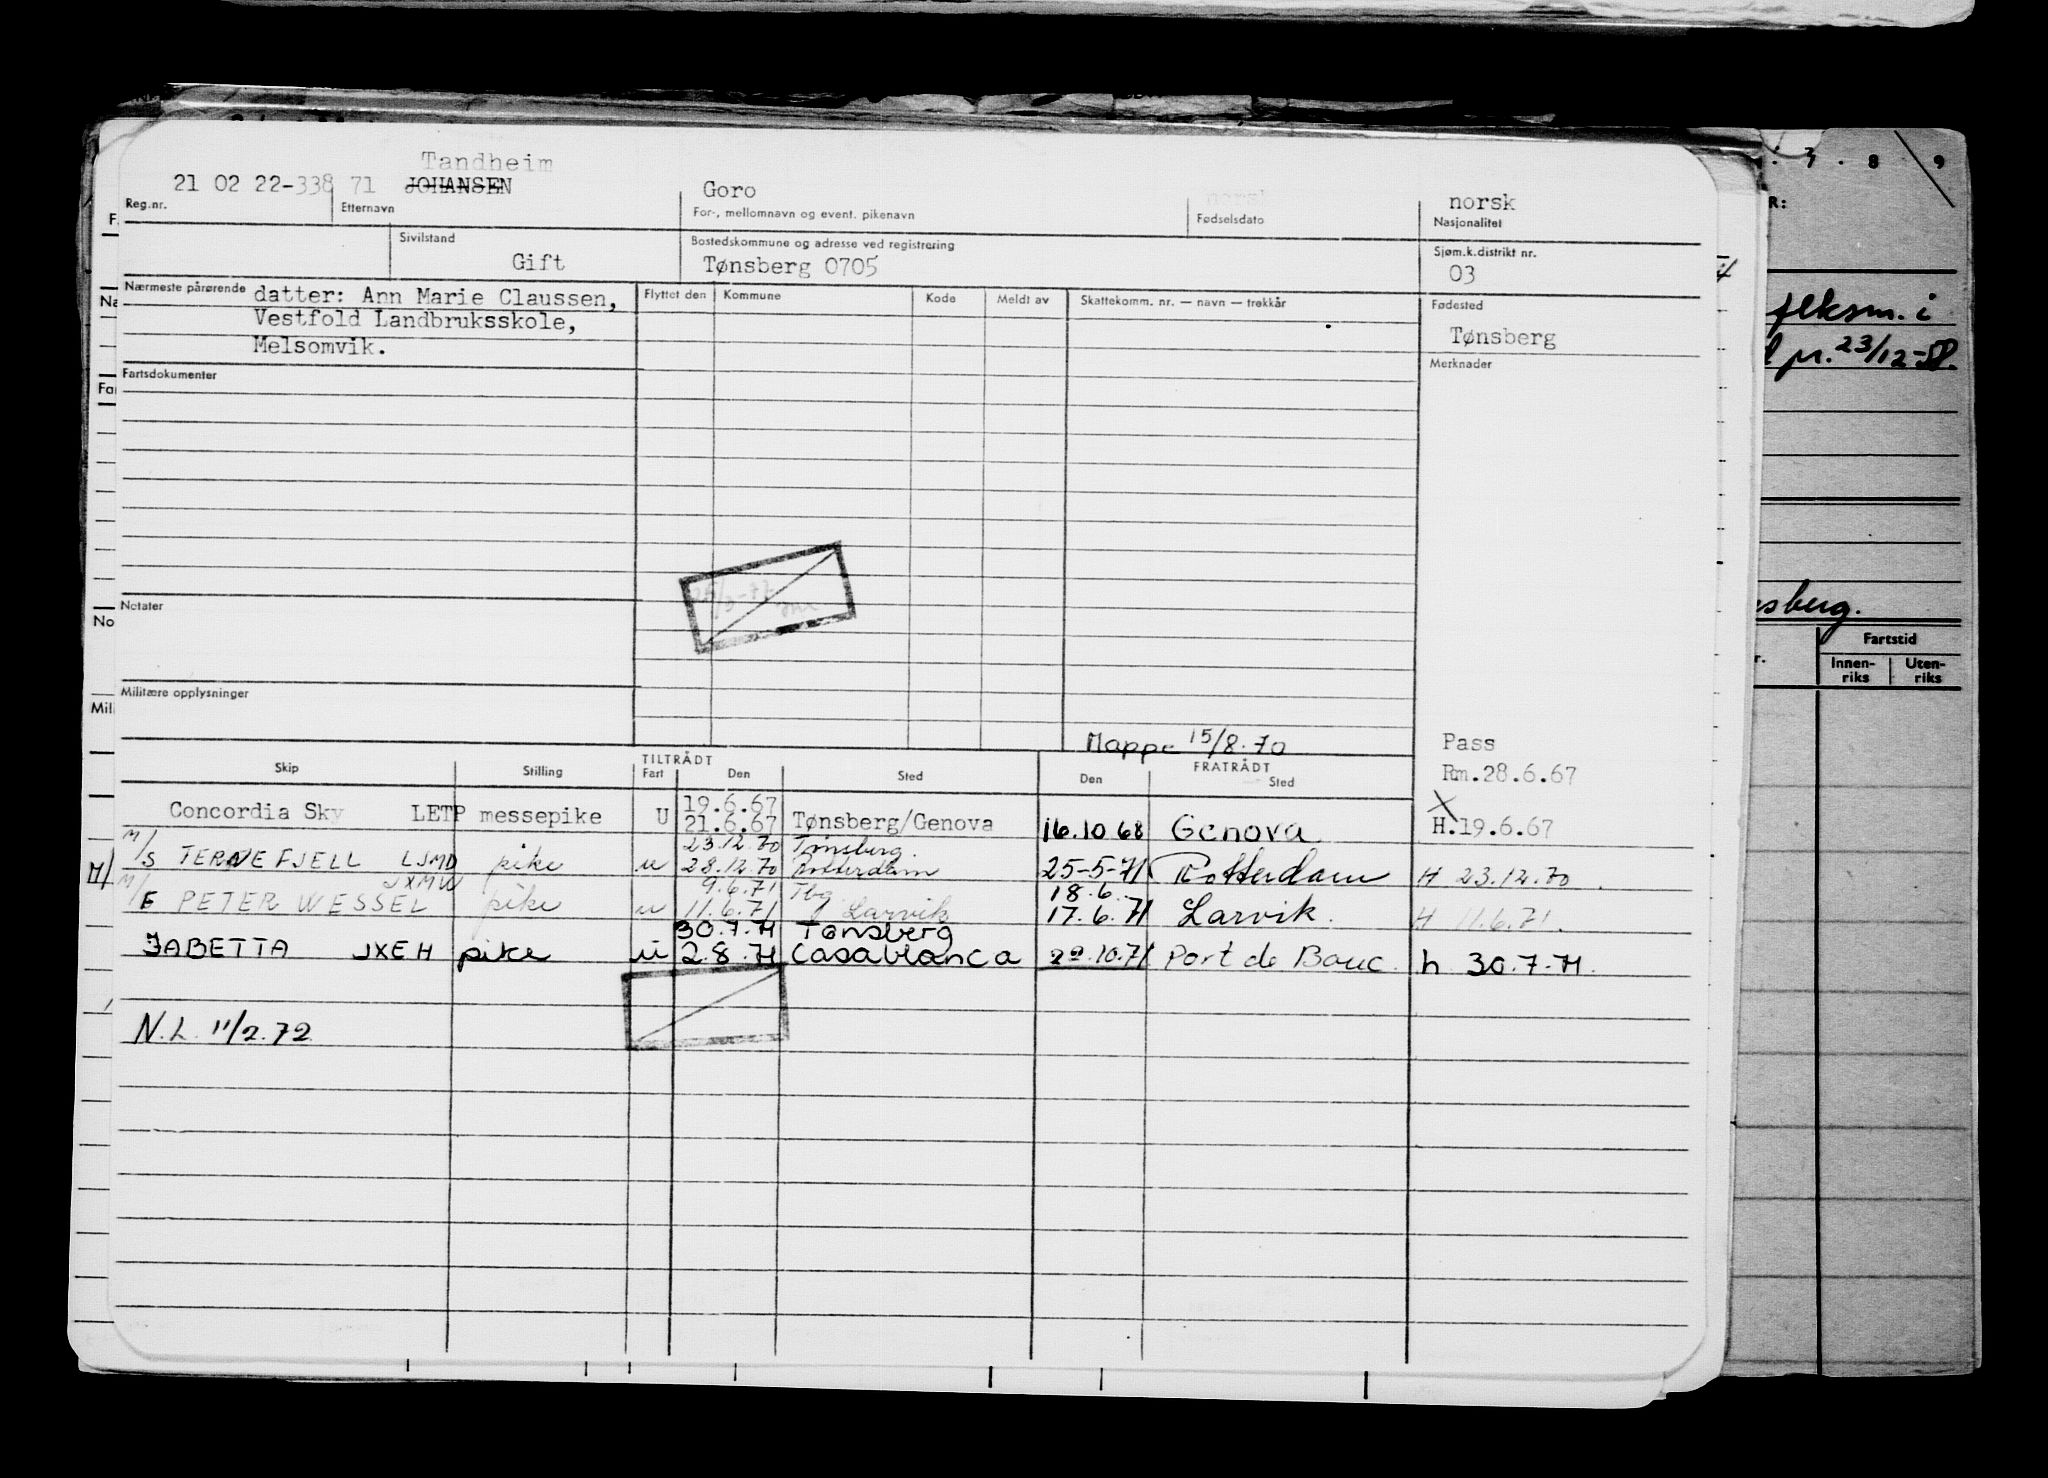 Tandheim
21 02 22-338 71 JOHANSEN Goro norsk norsk
Reg.nr. Etternavn For-, mellomnavn og event. pikenavn Fødselsdato Nasjonalitet
Sivilstand Bostedskommune og adresse ved registrering Sjøm.k.distrikt nr.
Gift Tønsberg 0705 03
Nærmeste pårørende datter: Ann Marie Claussen, Flyttet den Kommune Kode Meldt av Skattekomm. nr. — navn — trekkår Fødested
Vestfold Landbruksskole,
Melsomvik. Tønsberg
Fartsdokumenter Merknader
Notater
Militære opplysninger
Mappe 15/8.70 Pass
Skip Stilling TILTRÅDT Fart Den Sted FRATRÅDT Den Sted Rm.28.6.67
19.6.67
Concordia Sky LETP messepike U 21.6.67 Tønsberg/Genova 16.10 68 Genova H.19.6.67
23.12.70 Tønsberg
M/S TERNEFJELL LJMD pike u 28.12.70 Rotterdam 25-5-71 Rotterdam H 23.12.70
JXMW 9.6.71 Tbg 18.6.
M/F PETER WESSEL pike u 11.6.71 Larvik 17.6.71 Larvik. H 11.6.71.
30.7.71 Tønsberg
JABETTA JXEH pike u 2.8.71 Casablanca 22.10.71 Port de Bouc h 30.7.71.
N.L. 11/2.72
F.
Na
Far
No
Mil
M/
7 8 9
R:
flksm. i
pr. 23/12-58.
sberg.
Fartstid
r. Innen-riks Uten-riks